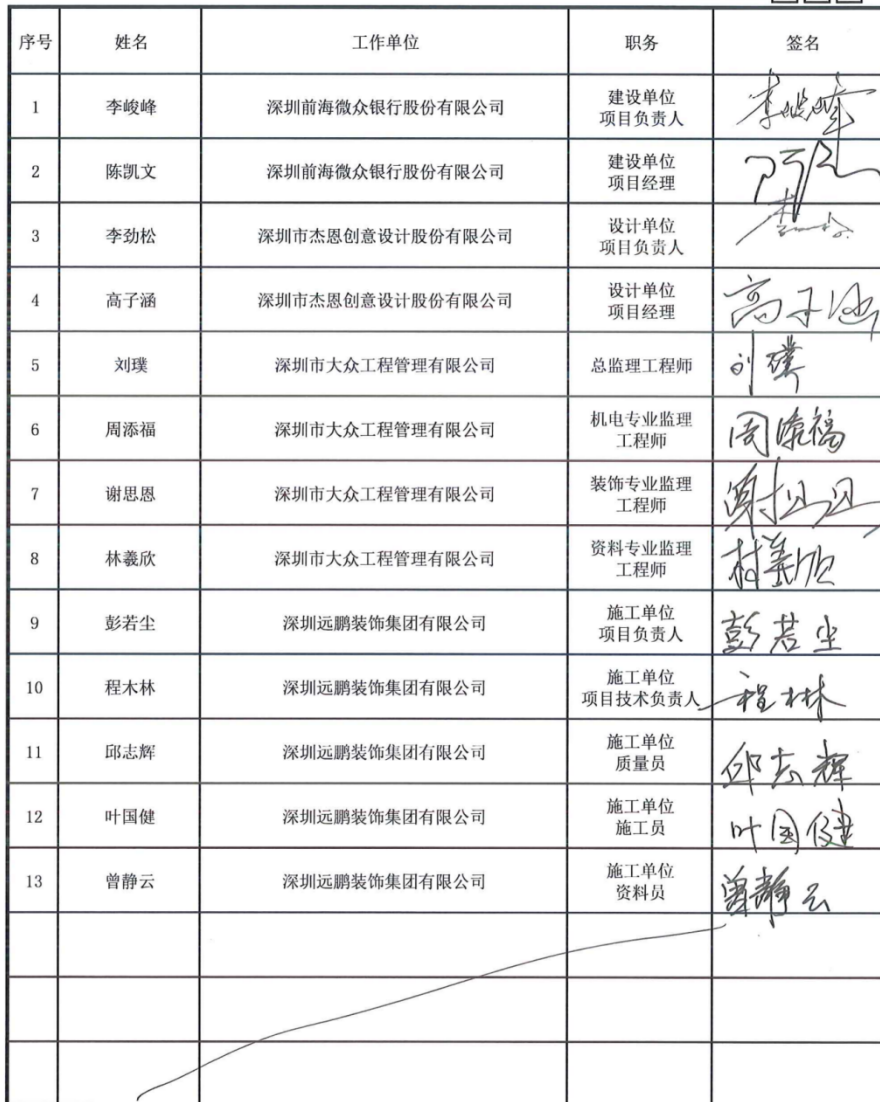 序号 姓名 工作单位 职务 签名
1 李峻峰 深圳前海微众银行股份有限公司 建设单位 李峻峰
项目负责人
2 陈凯文 深圳前海微众银行股份有限公司 建设单位
项目经理
3 李劲松 深圳市杰恩创意设计股份有限公司 设计单位
项目负责人
4 高子涵 深圳市杰恩创意设计股份有限公司 设计单位 高子涵
项目经理
5 刘璞 深圳市大众工程管理有限公司 总监理工程师 刘璞
6 周添福 深圳市大众工程管理有限公司 机电专业监理 周添福
工程师
7 谢思恩 深圳市大众工程管理有限公司 装饰专业监理
工程师
8 林羲欣 深圳市大众工程管理有限公司 资料专业监理
工程师
9 彭若尘 深圳远鹏装饰集团有限公司 施工单位 彭若尘
项目负责人
10 程木林 深圳远鹏装饰集团有限公司 施工单位 程木林
项目技术负责人
11 邱志辉 深圳远鹏装饰集团有限公司 施工单位 邱志辉
质量员
12 叶国健 深圳远鹏装饰集团有限公司 施工单位 叶国健
施工员
13 曾静云 深圳远鹏装饰集团有限公司 施工单位 曾静云
资料员